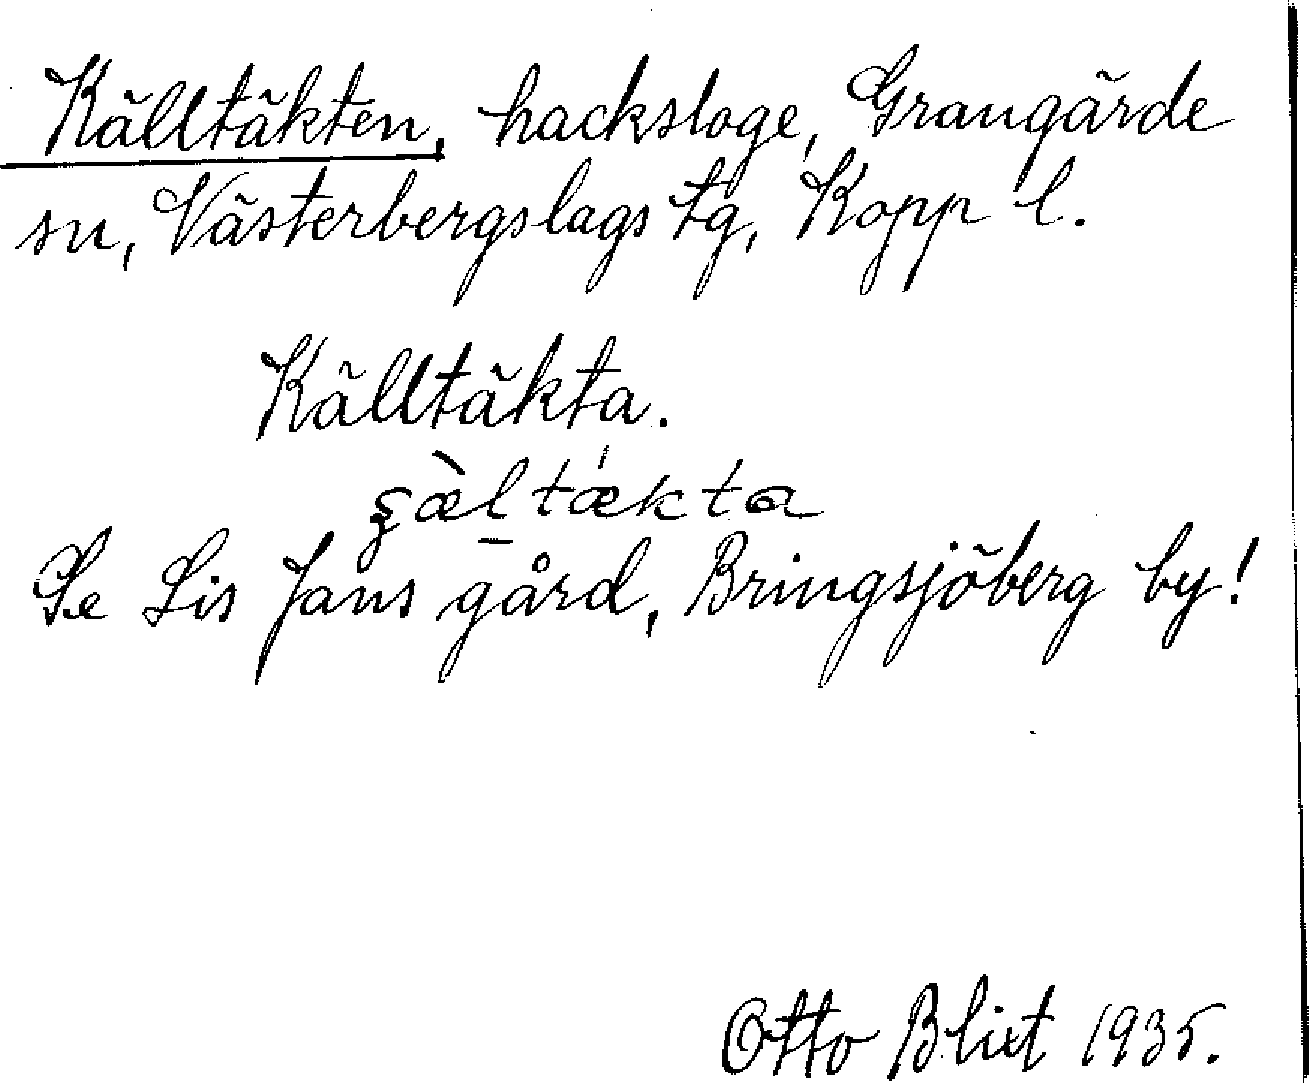 Källtäkten, hacksloge, Grangärde
sn, Västerbergslags tg, Kopp l.
Källtäkta.
çæ̀ltækta
Se Lis Jans gård, Bringsjöberg by!
Otto Blixt 1935.